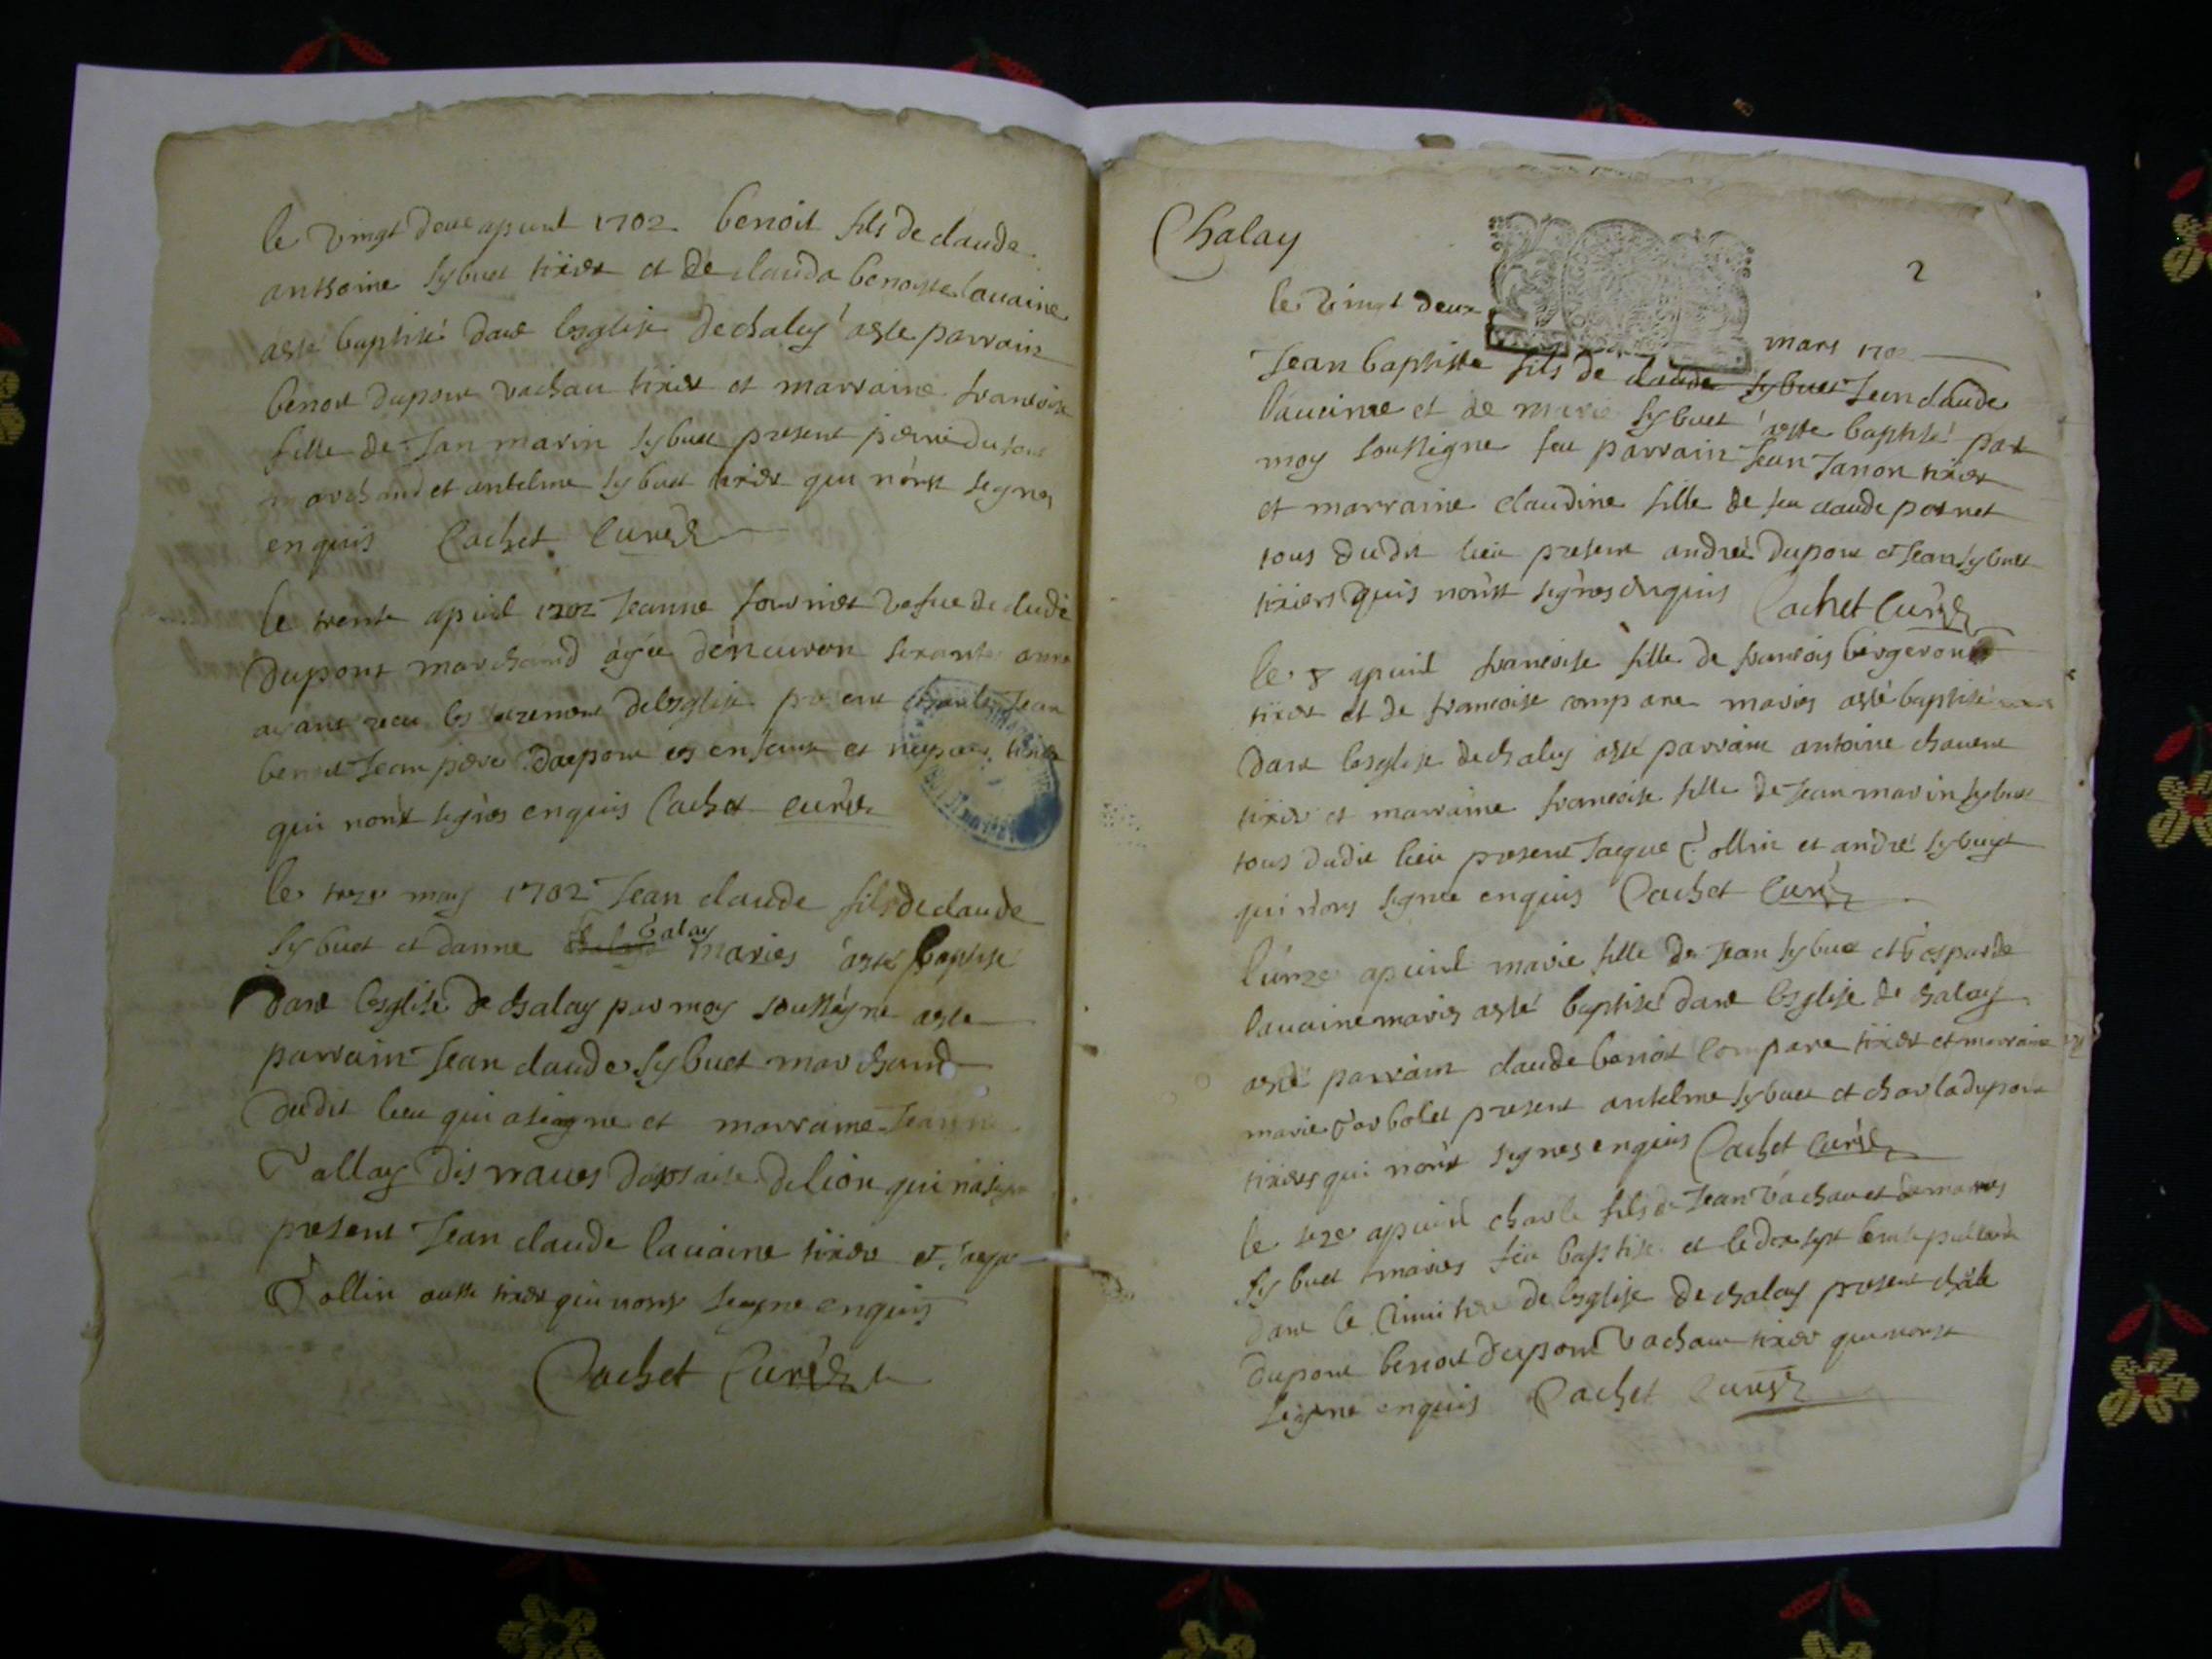 le vingt deux apuril 1702 benoit fils de claude
anthoine sybuet tixier et de clauda benoiste lauaine
a esté baptisé dans lesglise de chaley a este parrain
benoit dupont vachau tixier et marraine francoise
fille de Jan marin sybuet present pierre dupont
marchand et antelme sybuet tixier qui nont signes
enquis Cachet Curé
le trente apuril 1702 Jeanne fournier vefue de claude
dupont marchand agée denuiron sexante anne
ayant receu les sacrement de lesglise present charle Jean
benoit Jean piere dupont es enfant et
qui nont signes enquis Cachet curé
le treze may 1702 Jean claude fils de claude
sybuet et danne Talay maries a esté baptise
dans lesglise de chalay par moy soussigne a este
parrain Jean claude sybuet marchand
dudit lieu qui a signe et marraine Jeanne
Tallay de lion qui na signe
present Jean claude lauaine tixier et Jaque
Tollin aussi tixier qui nont signe enquis
Cachet Curé
Chalay
2
le vingt deux mars 1702
Jean baptiste fils de claude sybuet Jean claude
lauaine et de marie sybuet a este baptisé par
moy soussigne feu parrain Jean Janon tixier
et marraine claudine fille de feu claude pernet
tous dudit lieu present andre dupont et Jean sybuet
tixiers quis nont signes enquis Cachet Curé
le 8 apuril francoise fille de francois bergeron
tixier et de francoise compane maries a esté baptisé
dans lesglise de chaley a esté parrain antoine chauent
tixier et marraine francoise fille de Jean marin sybuet
tous dudit lieu present Jaque Tollin et andré sybuet
qui nons signes enquis Cachet Curé
lunze apuril marie fille de Jean sybuet et gesparde
lauaine maries a esté baptisé dans lesglise de chalay
a esté parrain claude benoit compane tixier et marraine
marie Tarbolet present antelme sybuet et charle dupont
tixiers qui nont signes enquis Cachet Curé
le seze apuril charle fils de Jean vachau et de marie
sybuet maries feu baptise et le dix sept
dans le cimitire de lesglise de chalay present charle
dupont benoit dupont vachau tixier qui nont
signe enquis Cachet Curé